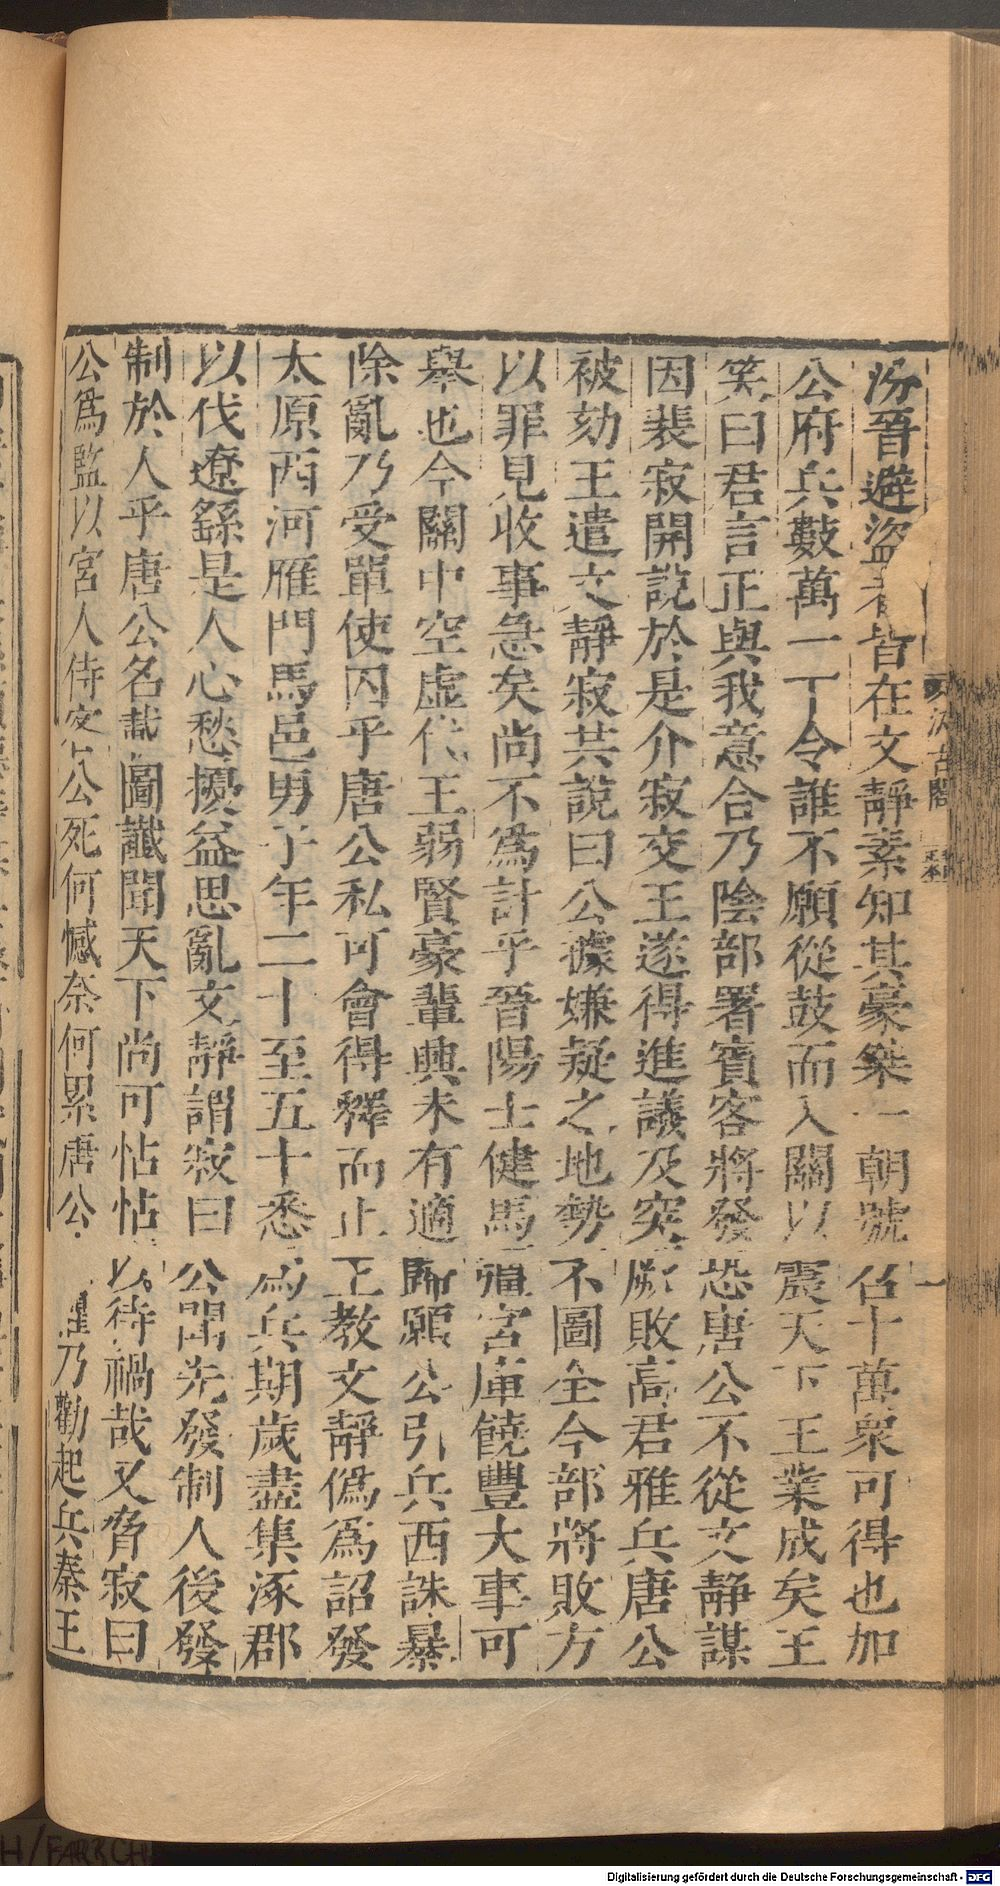 汾晉避盜者皆在文靜素知其豪桀一朝號召十萬衆可得也加
公府兵數萬一下令誰不願從鼓而入關以震天下王業成矣王
笑曰君言正與我意合乃陰部署賓客將發恐唐公不從文靜謀
因裴寂開說於是介寂交王遂得進議及突厥敗高君雅兵唐公
被劾王遣文靜寂共說曰公據嫌疑之地勢不圖全今部將敗方
以罪見收事急矣尚不爲計乎晉陽士健馬彊宮庫饒豐大事可
舉也今關中空虛代王弱賢豪輩興未有適歸願公引兵西誅暴
除亂乃受單使囚乎唐公私可會得釋而止王教文靜僞爲詔發
太原西河雁門馬邑男子年二十至五十悉爲兵期歲盡集涿郡
以伐遼繇是人心愁擾益思亂文靜謂寂曰公聞先發制人後發
制於人乎唐公名載圖讖聞天下尚可怗怗以待禍哉又脅寂曰
公爲監以宮人侍客公死何憾奈何累唐公寂懼乃勸起兵秦王
汲古閣
Digitalisierung gefördert durch die Deutsche Forschungsgemeinschaft - DFG